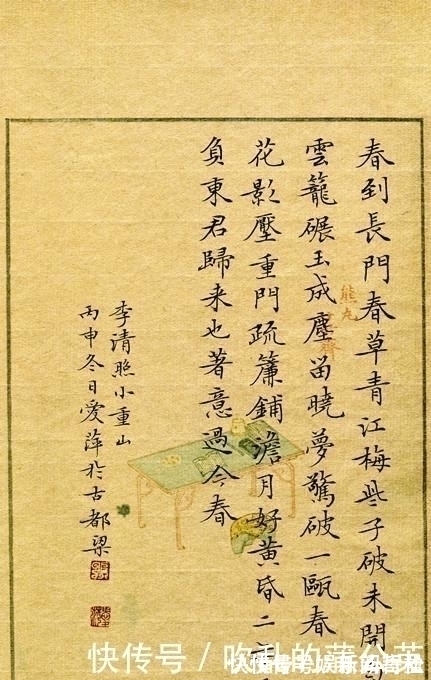 春到長門春草青江梅些子破未開
雲籠碾玉成塵留曉夢驚破一甌春
花影壓重門疏簾鋪澹月好黃昏二
負東君歸来也著意過今春
李清照小重山
丙申冬日爱萍於古都梁
熊丸
快传号/吹乱的蒲公英